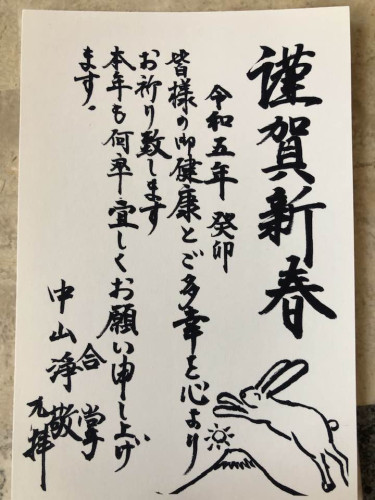 謹賀新春
令和五年 癸卯
皆様の御健康とご多幸を心より
お祈り致します
本年も何卒宜しくお願い申し上げ
ます。
合掌
中山浄敬
九拝